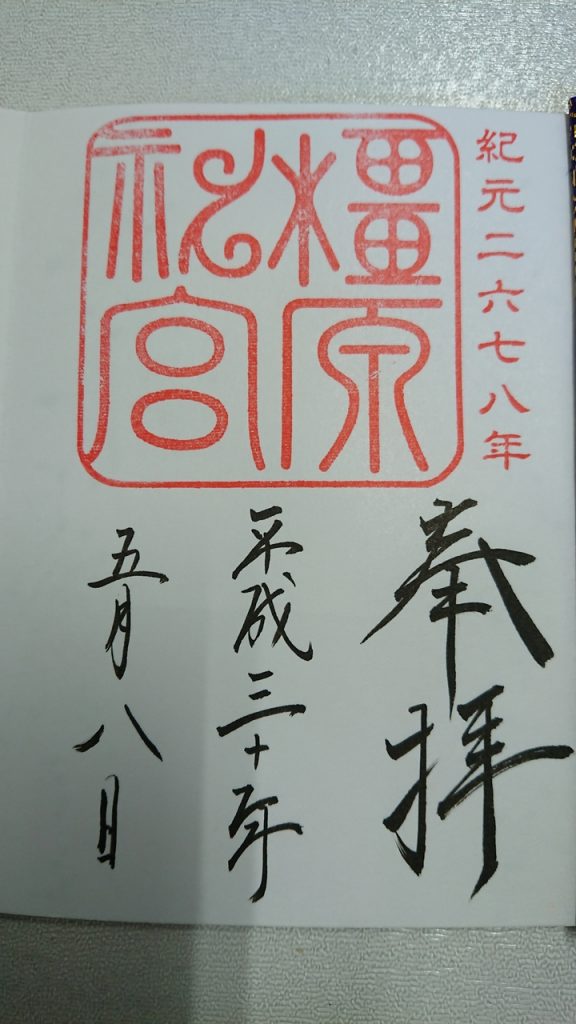 紀元二六七八年
橿原
神宮
奉拝
平成三十年
五月八日